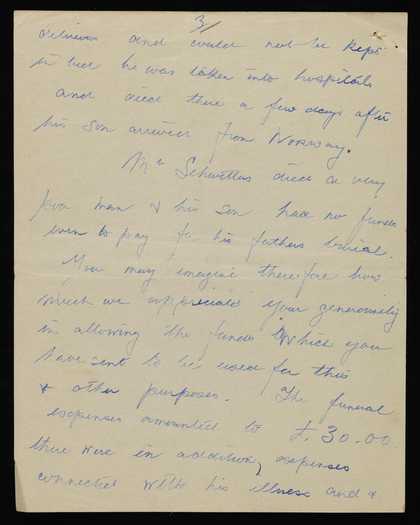 3/
delirious and could not be kept
in bed he was taken into hospital
and died there a few days after
his son arrived from Norway.
Mr Schwitters died a very
poor man & his son had no funds
even to pay for his fathers burial.
You may imagine therefore how
much we appreciate your generousity
in allowing the funds which you
have sent to be used for this
& other purposes. The funeral
expenses amounted to £30.00
there were in addition, expenses
connected with his illness and &